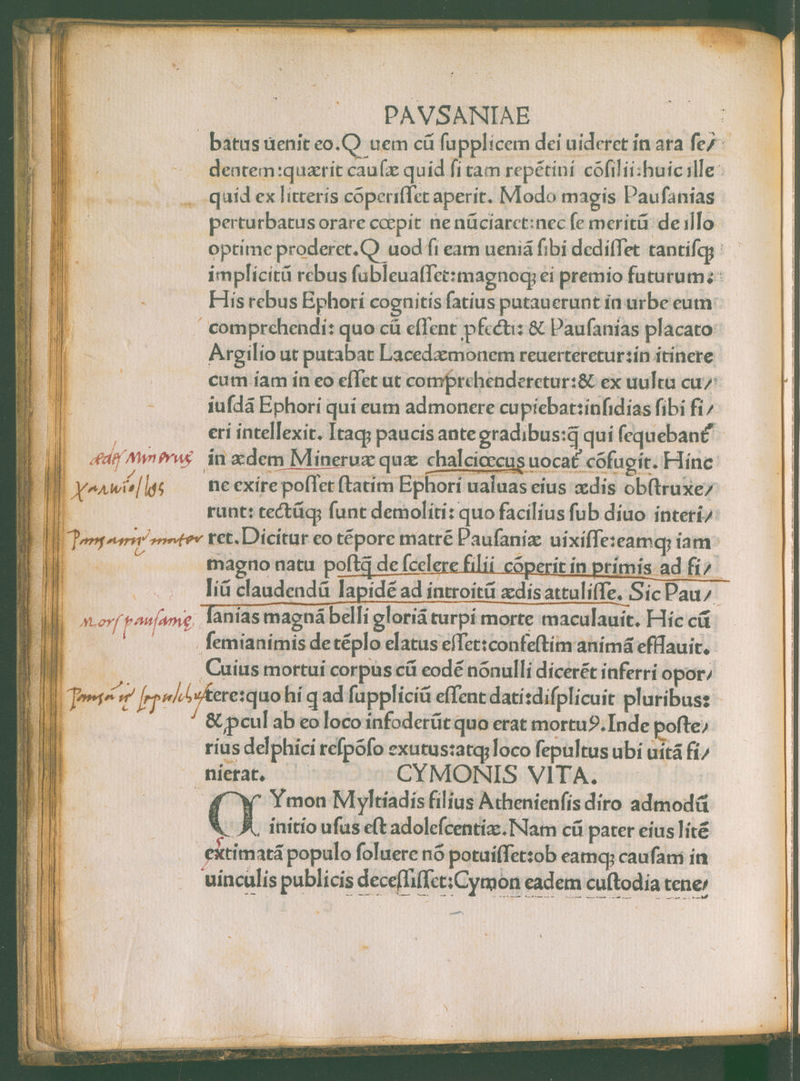 PAVSANIAE
batus uenit eo.Q uem cū ſupplicem dei uideret in ara ſe/
dentem:quærit cauſæ quid ſi tam repētini cōſilii:huic ille
quid ex litteris cōperiſſet aperit. Modo magis Pauſanias
perturbatus orare cœpit ne nūciaret:nec ſe meritū de illo
optime proderet.Q uod ſi eam ueniā ſibi dediſſet tantiſq;
implicitū rebus ſubleuaſſet:magnoq; ei premio futurum:
His rebus Ephori cognitis ſatius putauerunt in urbe eum
comprehendi: quo cū eſſent ꝓfecti: & Pauſanias placato
Argilio ut putabat Lacedæmonem reuerteretur:in itinere
cum iam in eo eſſet ut comprehenderetur:& ex uultu cu/
iuſdā Ephori qui eum admonere cupiebat:inſidias ſibi fi/
eri intellexit. Itaq; paucis ante gradibus:q̄ qui ſequebant̄
ædes Mineruæ
in ædem Mineruæ quæ chalciœcus uocat̄ cōfugit. Hinc
ne exire poſſet ſtatim Ephori ualuas eius ædis obſtruxe/
runt: tectūq; ſunt demoliti: quo facilius ſub diuo interi/
ret.Dicitur eo tēpore matrē Pauſaniæ uixiſſe:eamq; iam
magno natu poſtq̄ de ſcelere filii cōperit in primis ad fi/
liū claudendū lapidē ad introitū ædis attuliſſe. Sic Pau/
Mors pausaniæ
ſanias magnā belli gloriā turpi morte maculauit. Hic cū
ſemianimis de tēplo elatus eſſet:confeſtim animā efflauit.
Cuius mortui corpus cū eodē nōnulli dicerēt inferri opor/
tere:quo hi q ad ſuppliciū eſſent dati:diſplicuit pluribus:
& ꝓcul ab eo loco infoderūt quo erat mortuꝰ.Inde poſte/
rius delphici reſpōſo exutus:atq; loco ſepultus ubi uitā fi/
nierat.
CYMONIS VITA.
CYmon Myltiadis filius Athenienſis diro admodū
initio uſus eſt adoleſcentiæ.Nam cū pater eius litē
extimatā populo ſoluere nō potuiſſet:ob eamq; cauſam in
uinculis publicis deceſſiſſet:Cymon eadem cuſtodia tene/